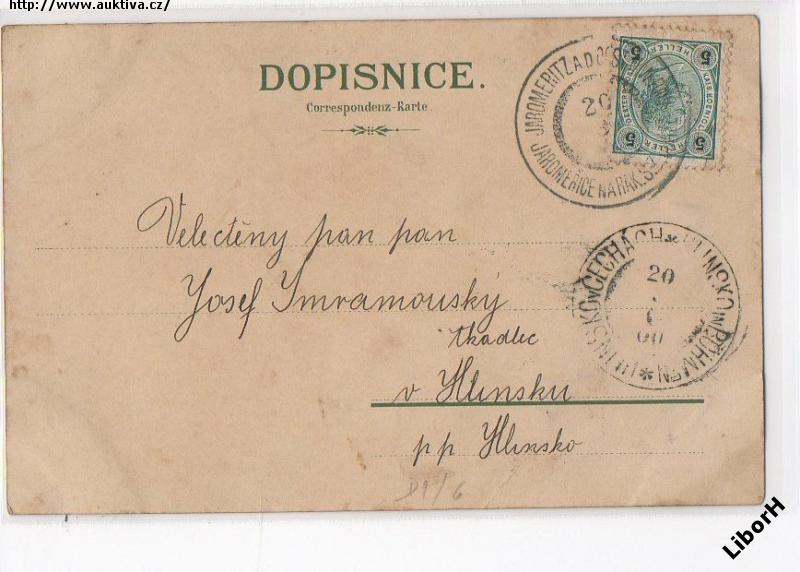 http://www.auktiva.cz/
DOPISNICE.
Correspondenz-Karte.
JAROMERITZ A D OST
20
JAROMĚŘICE NA RAK.
5 HELLER 5
5 HELLER 5
Velectěný pan pan
Josef Imramouský
tkadlec
v Hlinsku
pp Hlinsko
HLINSKO V ČECHÁCH * HLINSKO IN BÖHMEN *
20
00
D1/6
LiborH